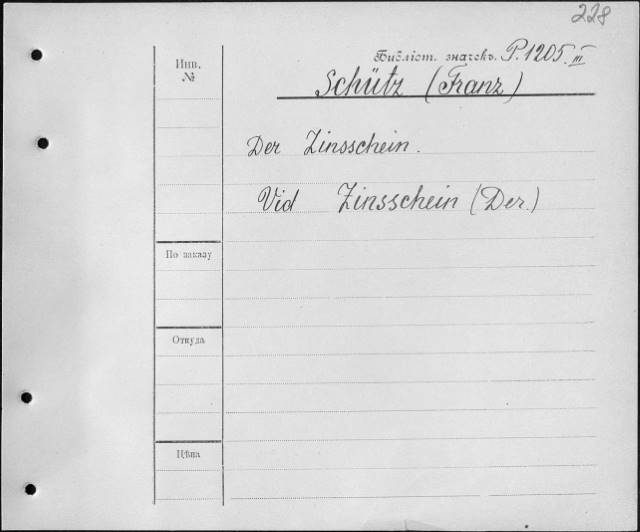 228
Библіот. значекъ. P.1205.III
Инв.
№
Schütz (Franz)
Der Zinsschein.
Vid Zinsschein (Der.)
По заказу
Откуда
Цѣна